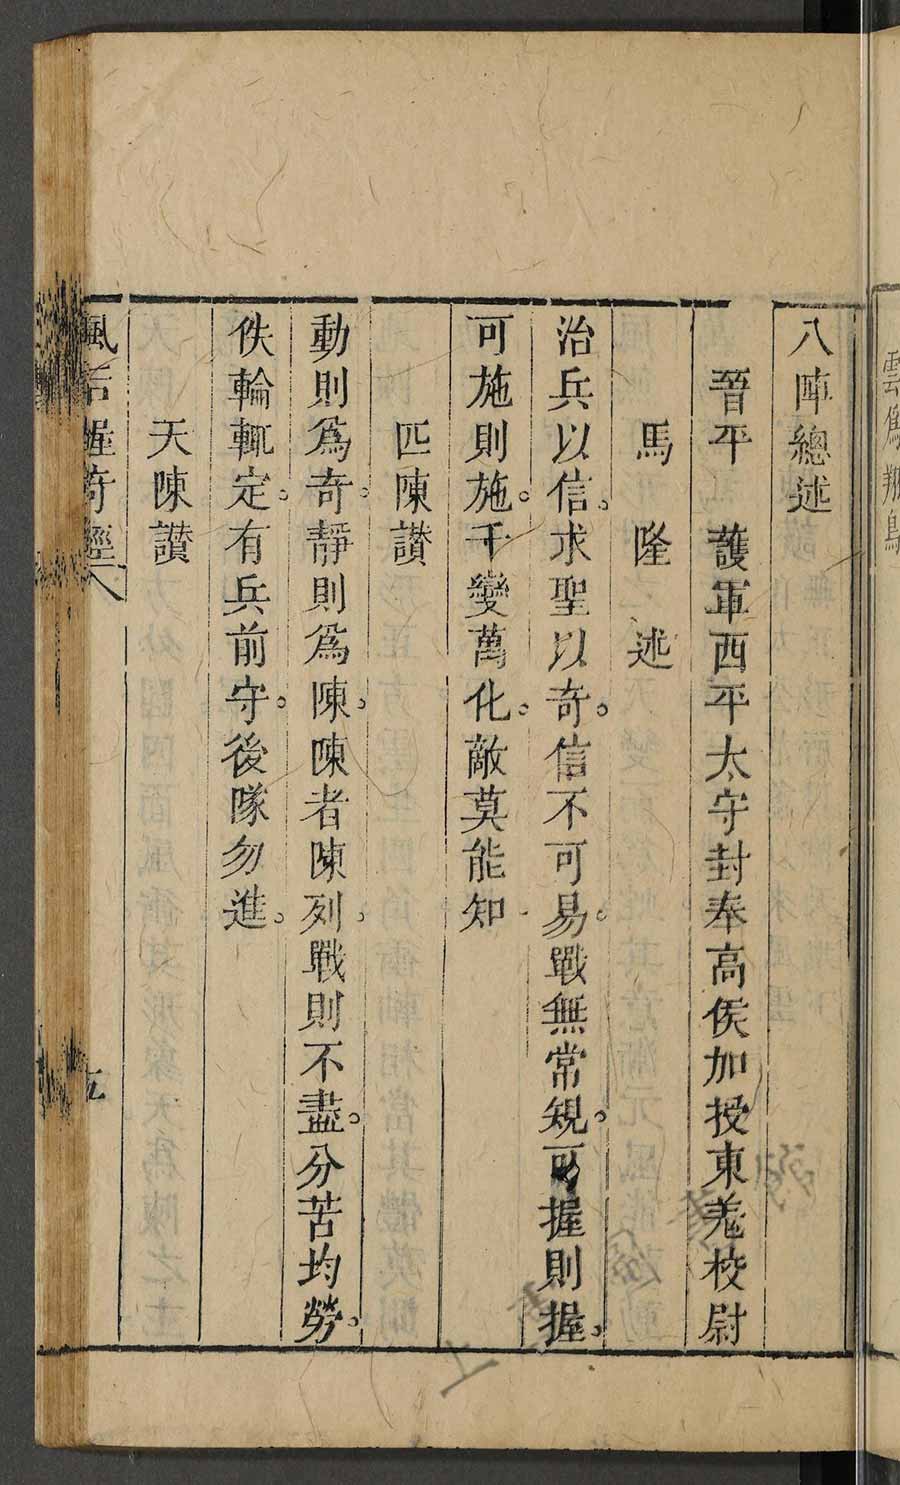 八陣總述
晉平　護軍西平太守封奉高侯加授東羗校尉
馬　隆　述
治兵以信。求聖以奇。信不可易。戰無常規。可握則握。
可施則施。千變萬化。敵莫能知
匹陳讃
動則爲奇。靜則爲陳。陳者陳列。戰則不盡。分苦均勞。
佚輪輒定。有兵前守。後隊勿進。
天陳讃
風后握奇經
五
雲爲翔鳥